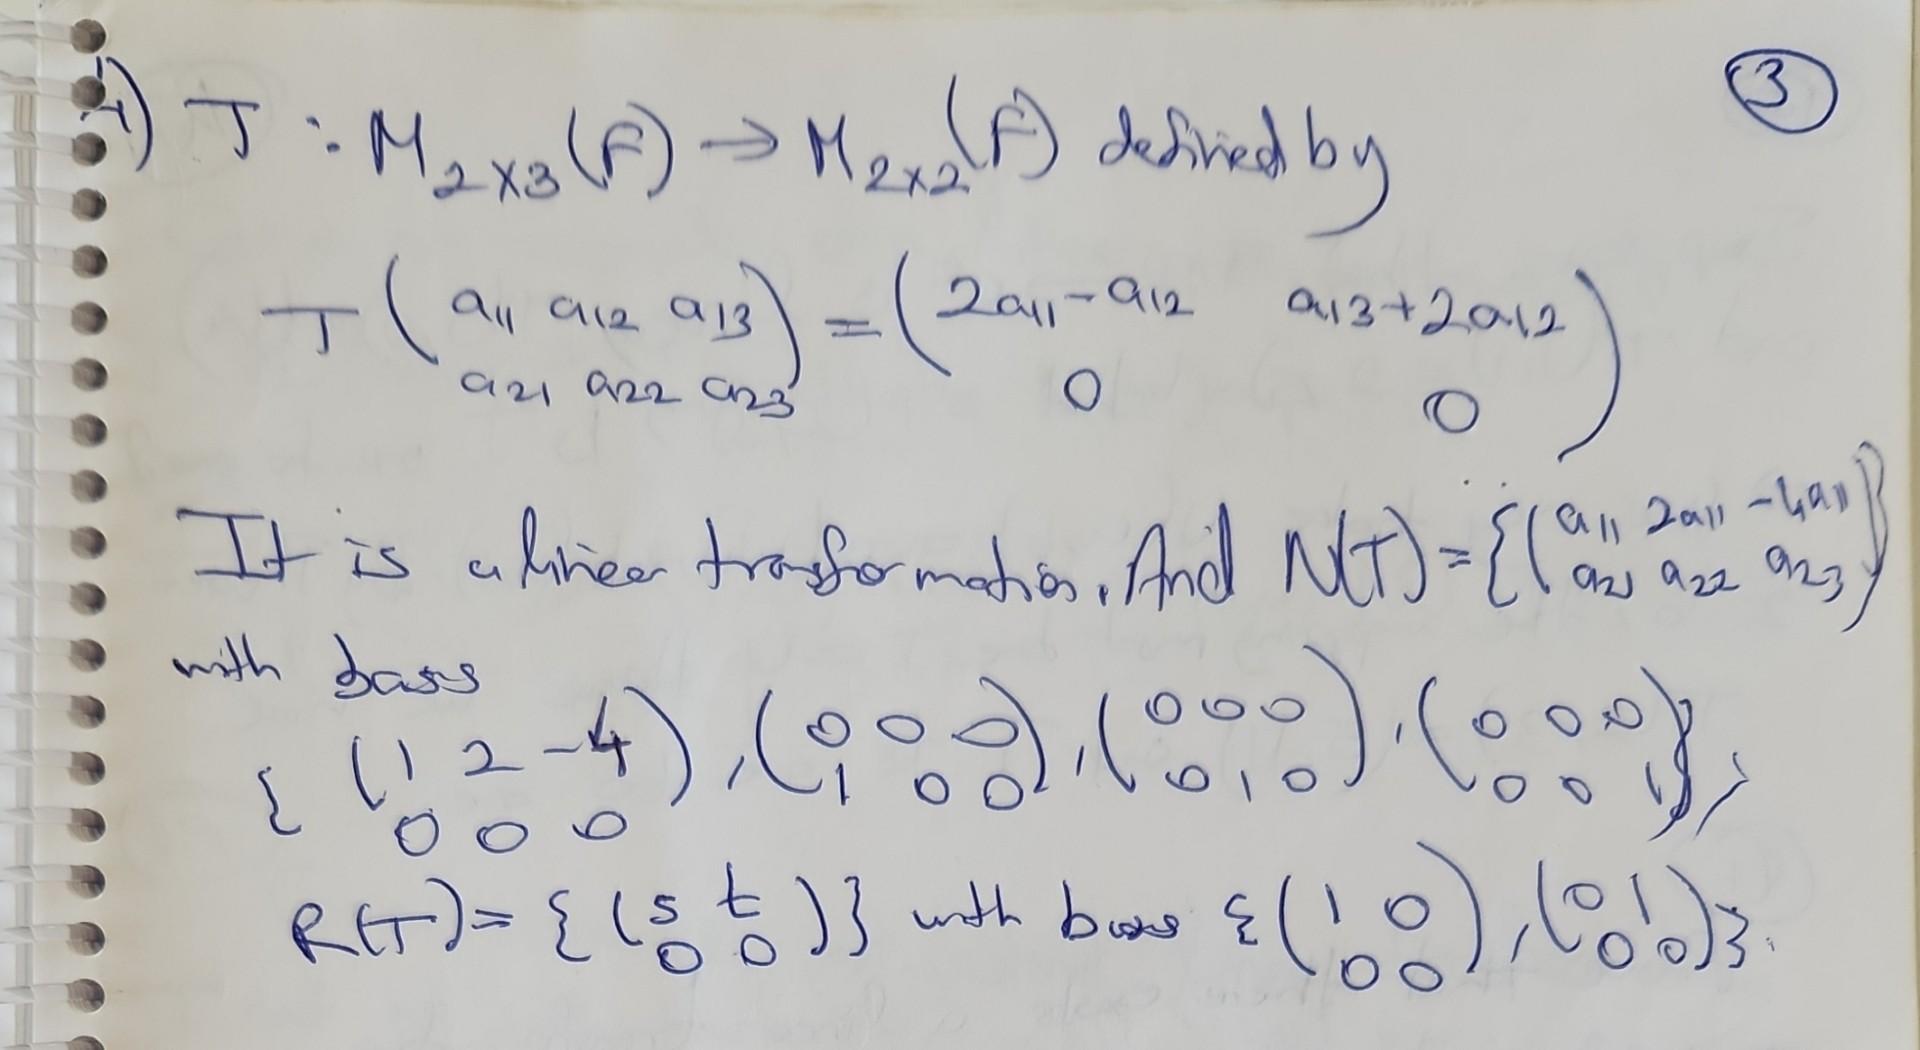 ③
4) T : M₂ₓ₃(F) → M₂ₓ₂(F) defined by
T ( a₁₁ a₁₂ a₁₃ ) = ( 2a₁₁-a₁₂ a₁₃+2a₁₂ )
a₂₁ a₂₂ a₂₃ 0 0
It is a linear transformation. And N(T) = { ( a₁₁ 2a₁₁ -4a₁₁ ) }
a₂₁ a₂₂ a₂₃
with basis
{ ( 1 2 -4 ) , ( 0 0 0 ) , ( 0 0 0 ) , ( 0 0 0 ) } ,
0 0 0 1 0 0 0 1 0 0 0 1
R(T) = { ( s t ) } with basis { ( 1 0 ) , ( 0 1 ) } .
0 0 0 0 0 0